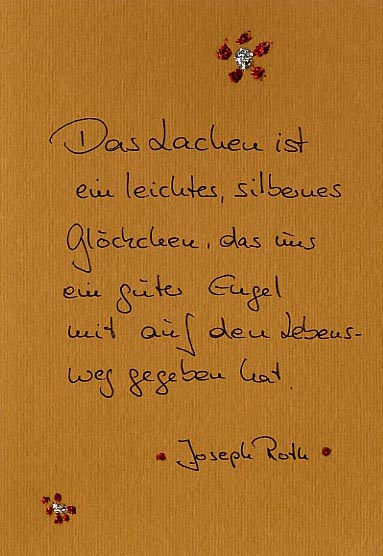 Das Lachen ist
ein leichtes, silbernes
Glöckchen, das uns
ein guter Engel
mit auf den Lebens-
weg gegeben hat.
Joseph Roth